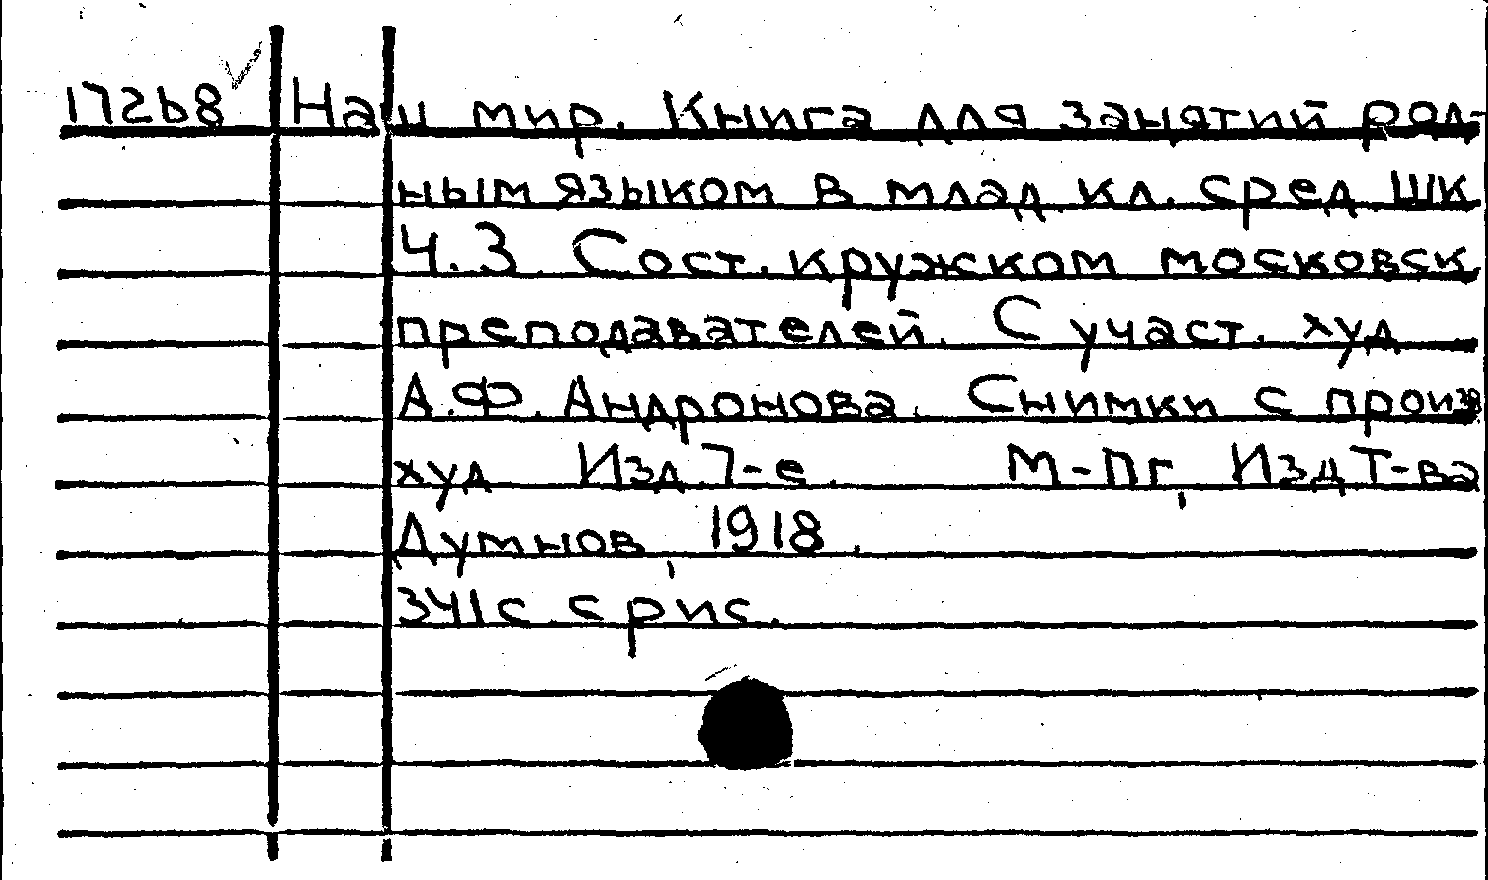 17268 Наш мир. Книга для занятий род-
ным языком в млад кл. сред шк
Ч.3 Сост. кружком московск
преподавателей. С участ. худ
А.Ф. Андронова. Снимки с произв
худ Изд. 7-е. М-Пг, Изд Т-ва
Думнов, 1918.
341с с рис.